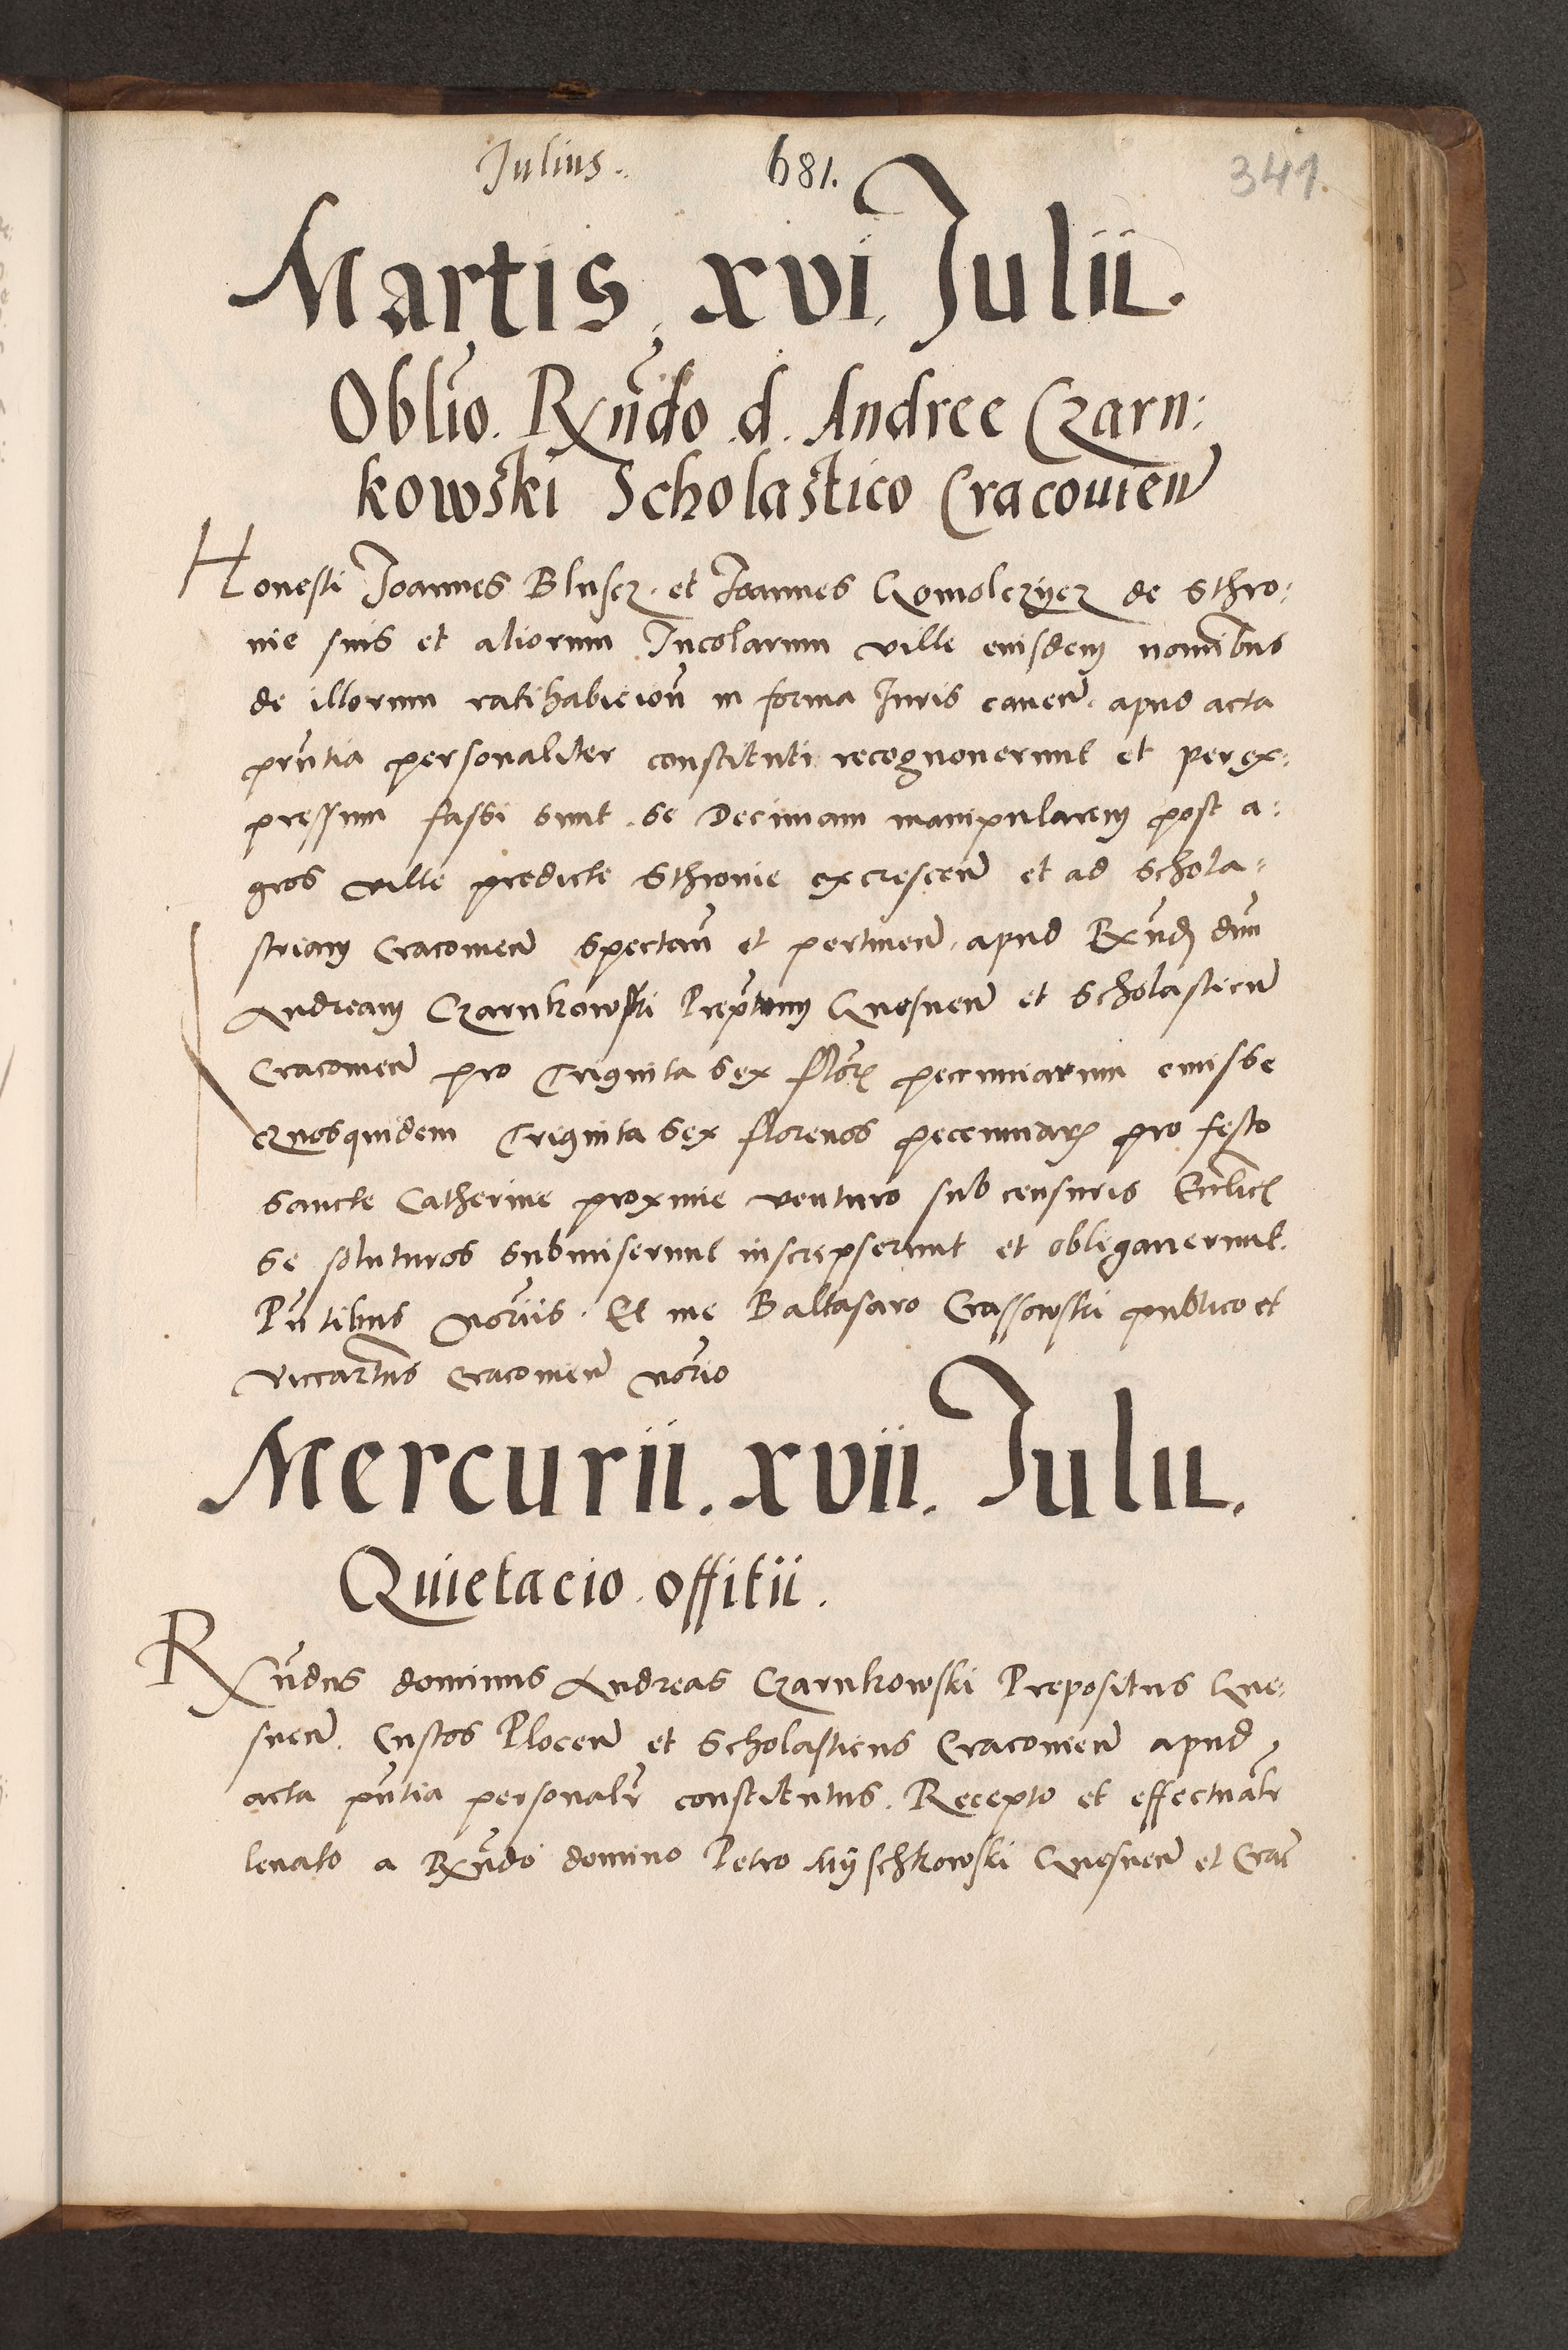 Julius. 681. 341.
Martis. xvi. Julii.
Oblio. Rxndo. d. Andree Czarn:
kowski Scholastico Cracouien
Honesti Joannes Bluscz. et Joannes Gomolczijcz de Sthro:
nie suis et aliorum Incolarum ville eiusdem nominibus
de illorum ratihabicion in forma Juris cauen. apud acta
prntia personaliter constituti recognouerunt et per ex:
pressum fassi sunt. se Decimam manipularem post a:
gros ville predicte Sthronie excrescen et ad Schola:
striam Cracouien spectan et pertinen. apud Rxnd dnm
Andream Czarnkowski Prepitum Gnesnen et Scholasticum
Cracouien pro Triginta sex flor pecuniarum emisse
Quosquidem Triginta sex florenos pecuniar pro festo
Sancte Catherine proxime venturo sub censuris Ecclic
se soluturos submiserunt inscripserunt et obligauerunt.
Pntibus Noriis. Et me Baltasaro Crassowski publico et
Viccariatus Cracouien norio
Mercurii. xvii. Julii.
Quietacio. offitii.
Rxndus dominus Andreas Czarnkowski Prepositus Gne:
snen. Custos Plocen et Scholasticus Cracouien apud
acta pntia personalr constitutus. Recepto et effectualr
leuato a Rxndo domino Petro Mijschkowski Gnesnen et Crac